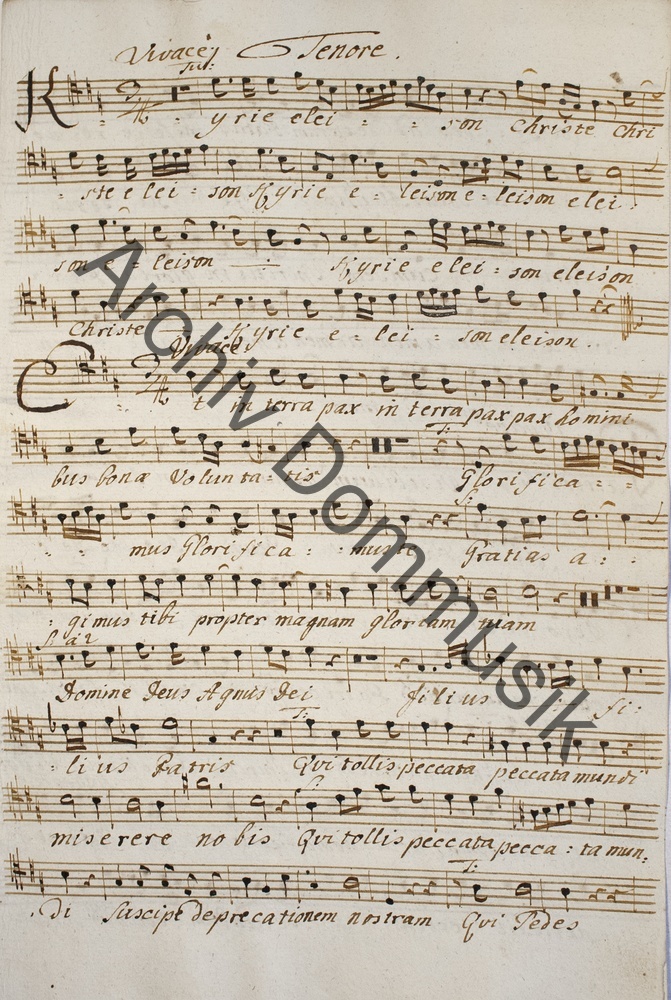 Vivace Tenore.
Kyrie elei - - son Christe Chri
- ste elei - son Kyrie e - leison e - leison elei -
son e - leison - Kyrie elei - son eleison
Christe Kyrie e - lei - son eleison.
Vivace
Et in terra pax in terra pax pax homini
T:
bus bonæ Volunta - tis Glorifica - -
S:
mus Glorifica - mus te Gratias a - -
- gimus tibi propter magnam gloriam tuam
Domine Deus Agnus Dei filius - fi -
T:
- lius Patris Qvi tollis peccata peccata mundi
miserere nobis Qvi tollis peccata pecca - ta mun,
T:
. di Suscipe deprecationem nostram Qvi Sedes
Archiv Dommusik